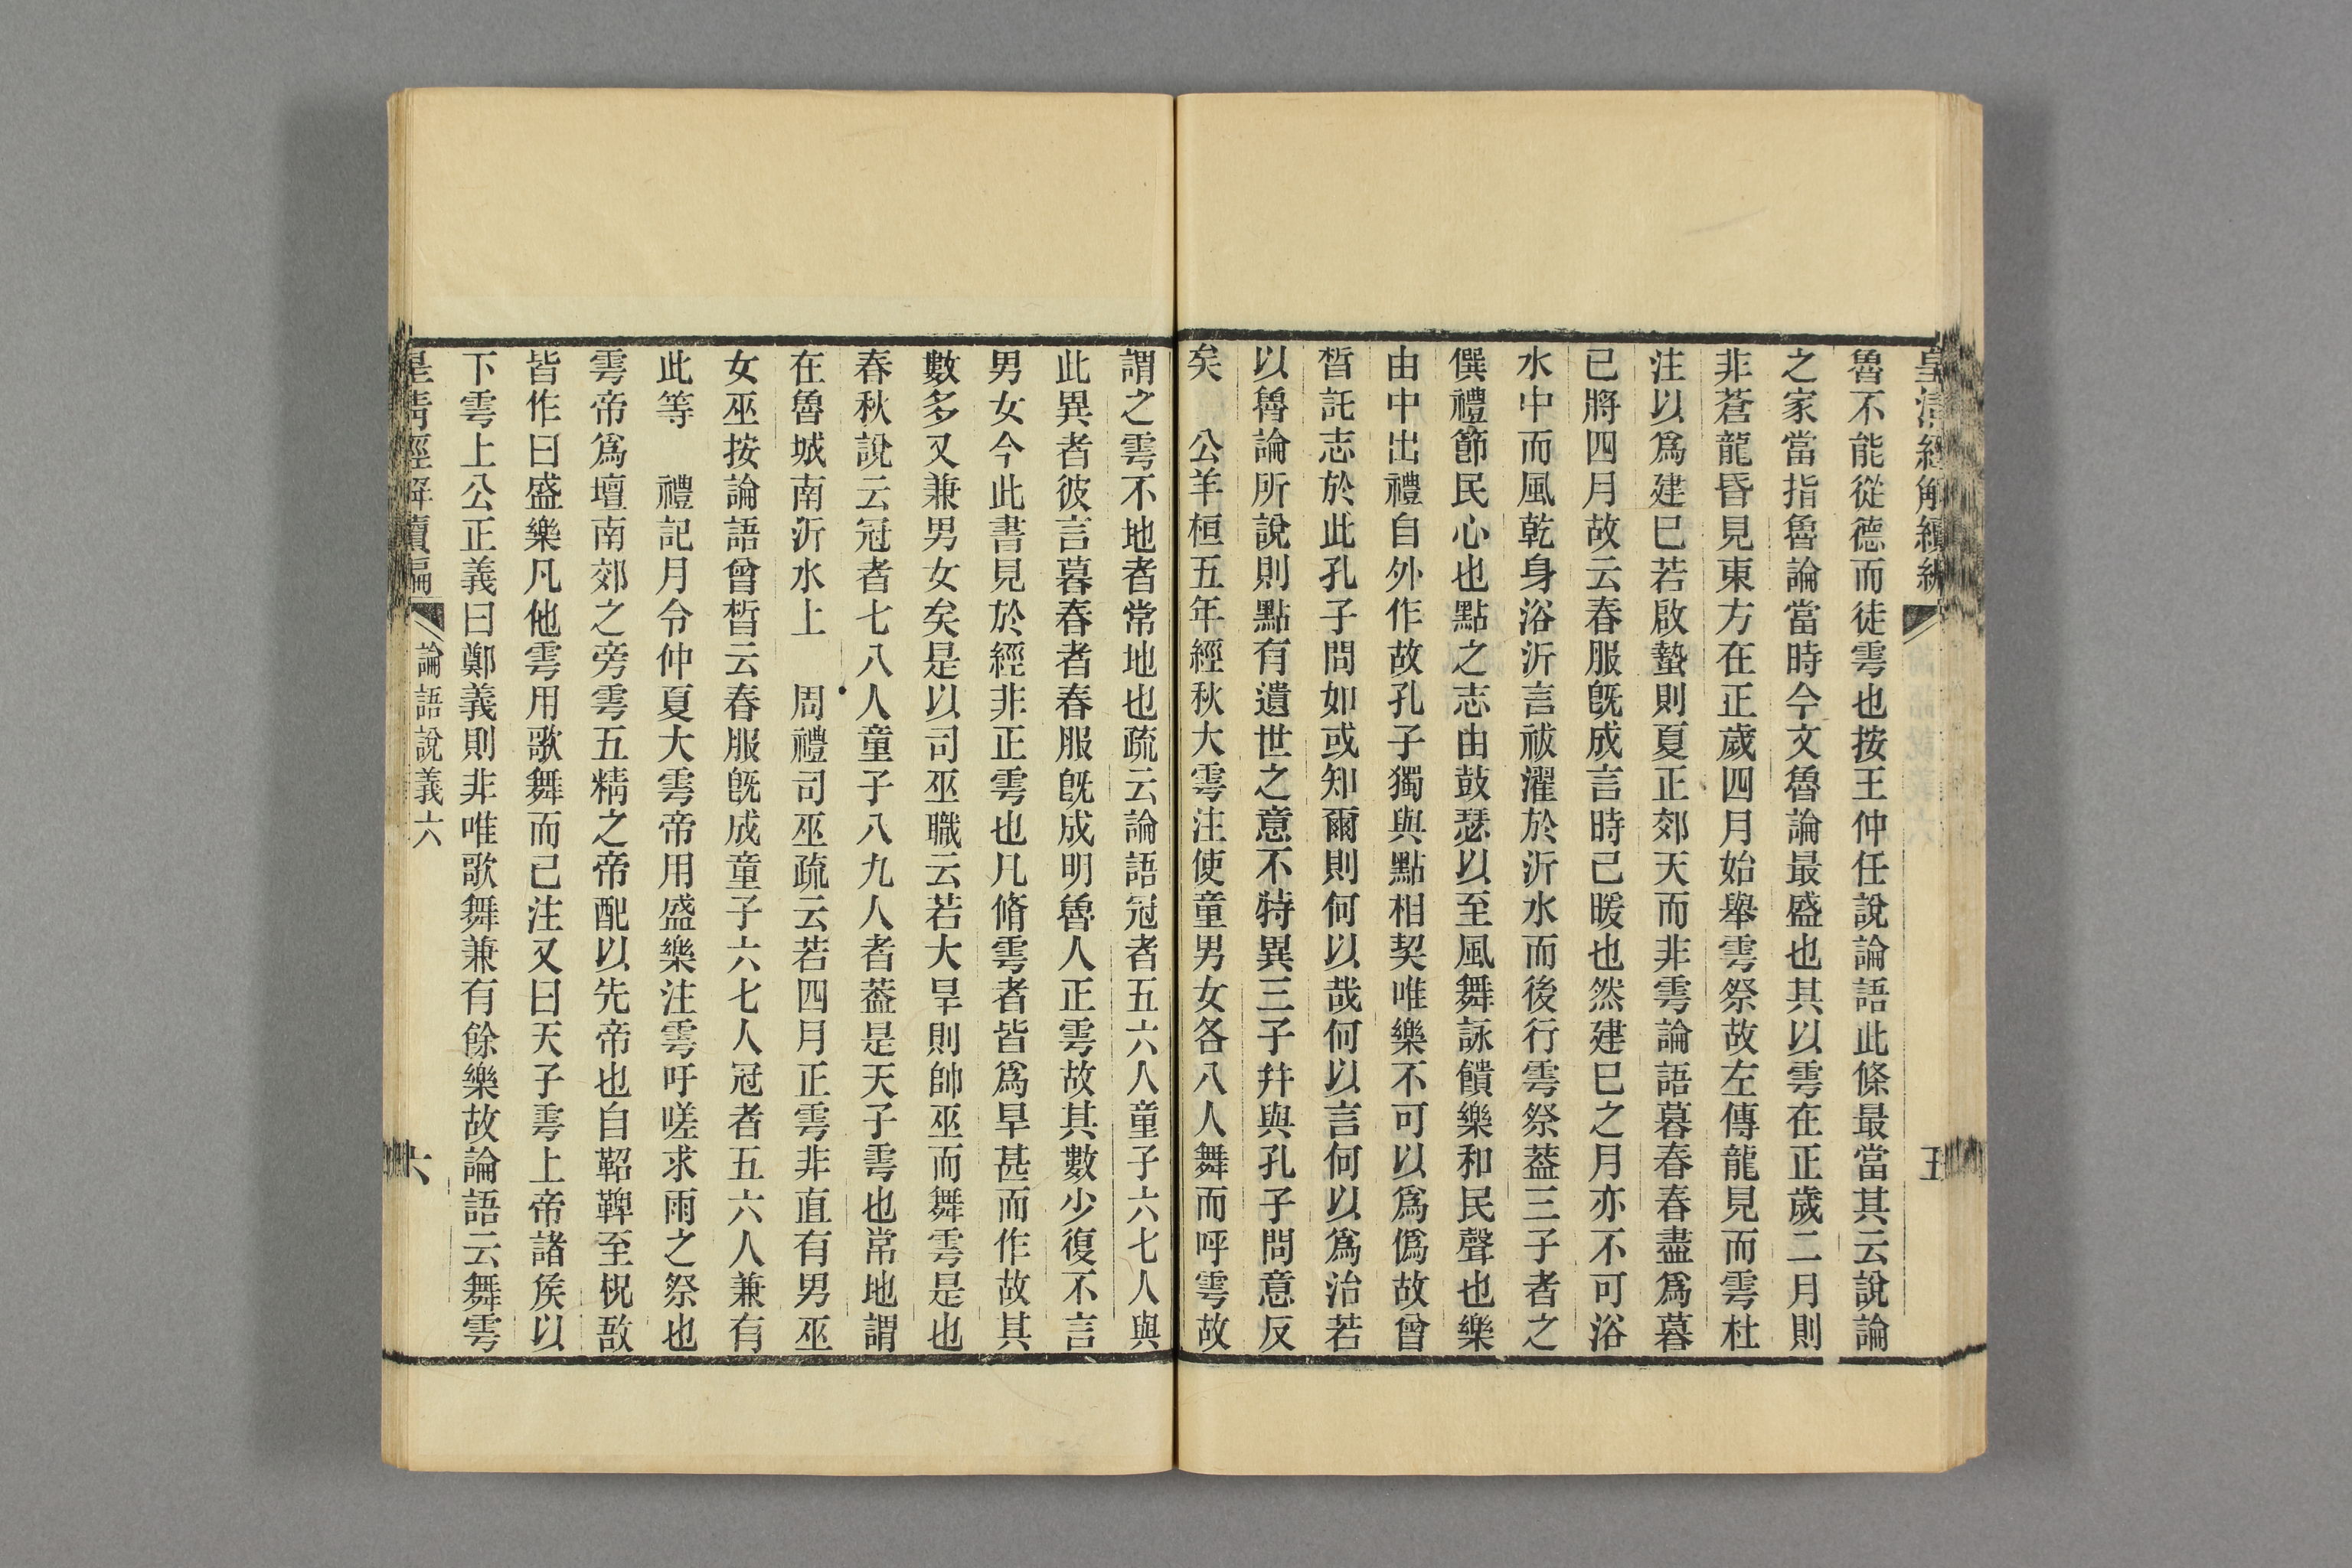 皇清經解續編
五
魯不能從德而徒雩也按王仲任說論語此條最當其云說論
之家當指魯論當時今文魯論最盛也其以雩在正歲二月則
非蒼龍昏見東方在正歲四月始舉雩祭故左傳龍見而雩杜
注以爲建巳若啟蟄則夏正郊天而非雩論語暮春春盡爲暮
已將四月故云春服旣成言時已暖也然建巳之月亦不可浴
水中而風乾身浴沂言祓濯於沂水而後行雩祭葢三子者之
僎禮節民心也點之志由鼓瑟以至風舞詠饋樂和民聲也樂
由中出禮自外作故孔子獨與點相契唯樂不可以爲僞故曾
晳託志於此孔子問如或知爾則何以哉何以言何以爲治若
以魯論所說則點有遺世之意不特異三子幷與孔子問意反
矣　公羊桓五年經秋大雩注使童男女各八人舞而呼雩故
謂之雩不地者常地也疏云論語冠者五六人童子六七人與
此異者彼言暮春者春服旣成明魯人正雩故其數少復不言
男女今此書見於經非正雩也凡脩雩者皆爲旱甚而作故其
數多又兼男女矣是以司巫職云若大旱則帥巫而舞雩是也
春秋說云冠者七八人童子八九人者葢是天子雩也常地謂
在魯城南沂水上　周禮司巫疏云若四月正雩非直有男巫
女巫按論語曾晳云春服旣成童子六七人冠者五六人兼有
此等　禮記月令仲夏大雩帝用盛樂注雩吁嗟求雨之祭也
雩帝爲壇南郊之旁雩五精之帝配以先帝也自鞀鞞至柷敔
皆作曰盛樂凡他雩用歌舞而已注又曰天子雩上帝諸矦以
下雩上公正義曰鄭義則非唯歌舞兼有餘樂故論語云舞雩
皇清經解續編
論語說義六
六